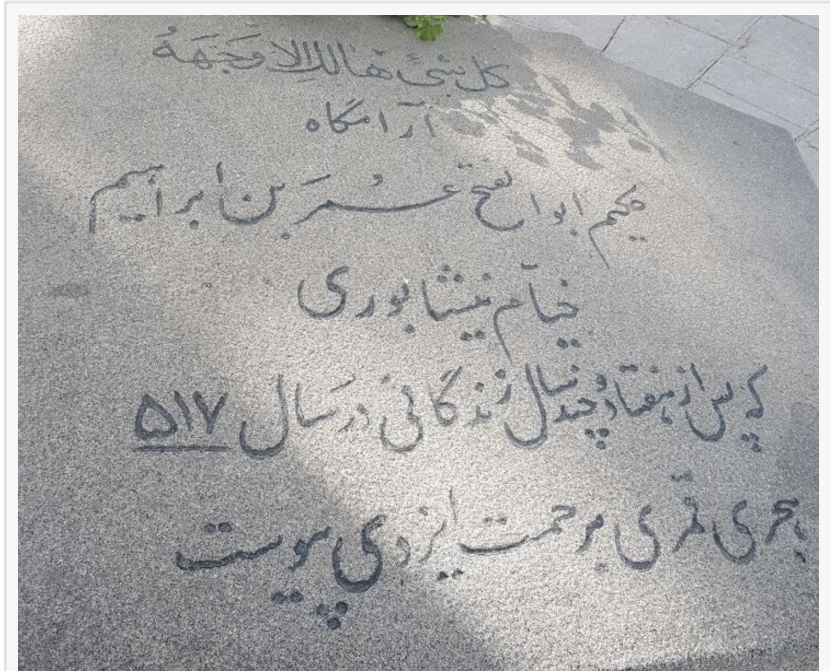 كل شیئ هالك الا وَجَهَهُ
آرامگاه
حکیم ابوالفتح عُمَر بن ابراهیم
خیّام نیشابوری
که پس از هفتاد و چند سال زندگانی در سال ۵۱۷
هجری قمری برحمت ایزدی پیوست